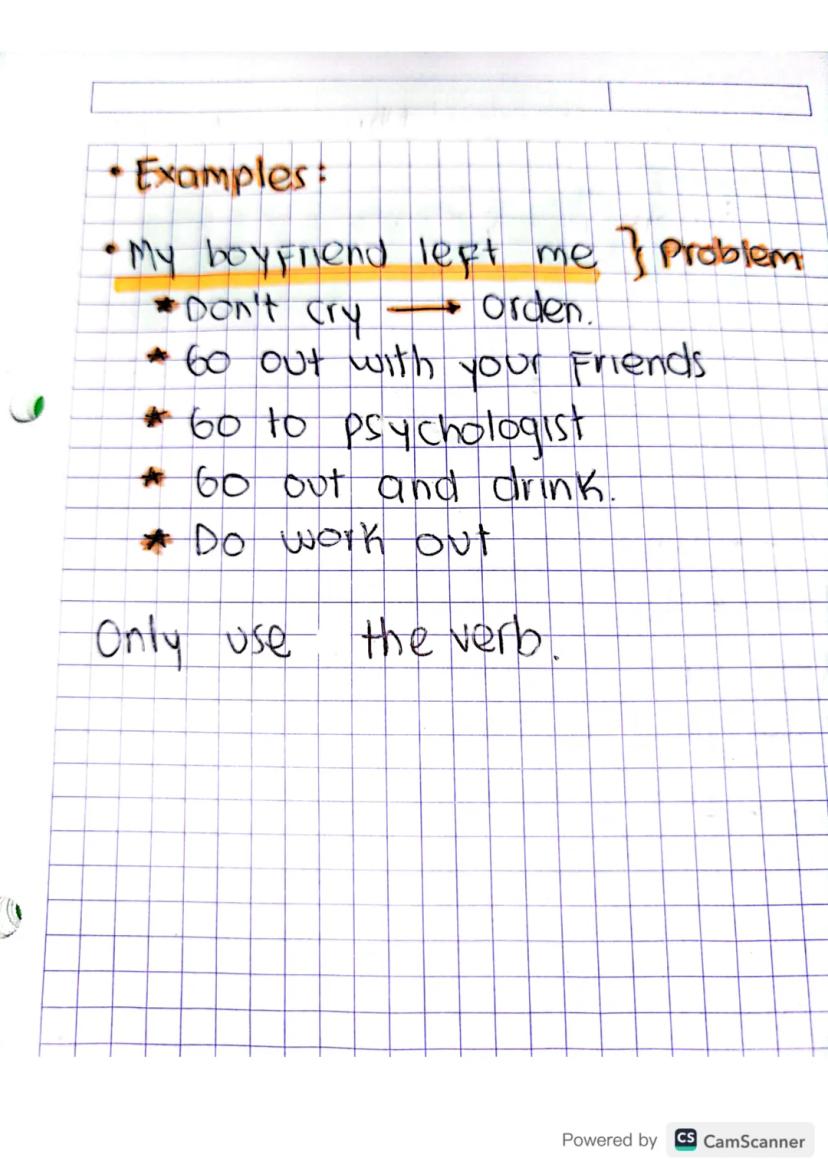 • Examples:
• My boyfriend left me } Problem
★ Don't cry → Orden.
★ Go out with your Friends
★ Go to psychologist
★ Go out and drink.
★ Do work out
Only use the verb.
Powered by CS CamScanner